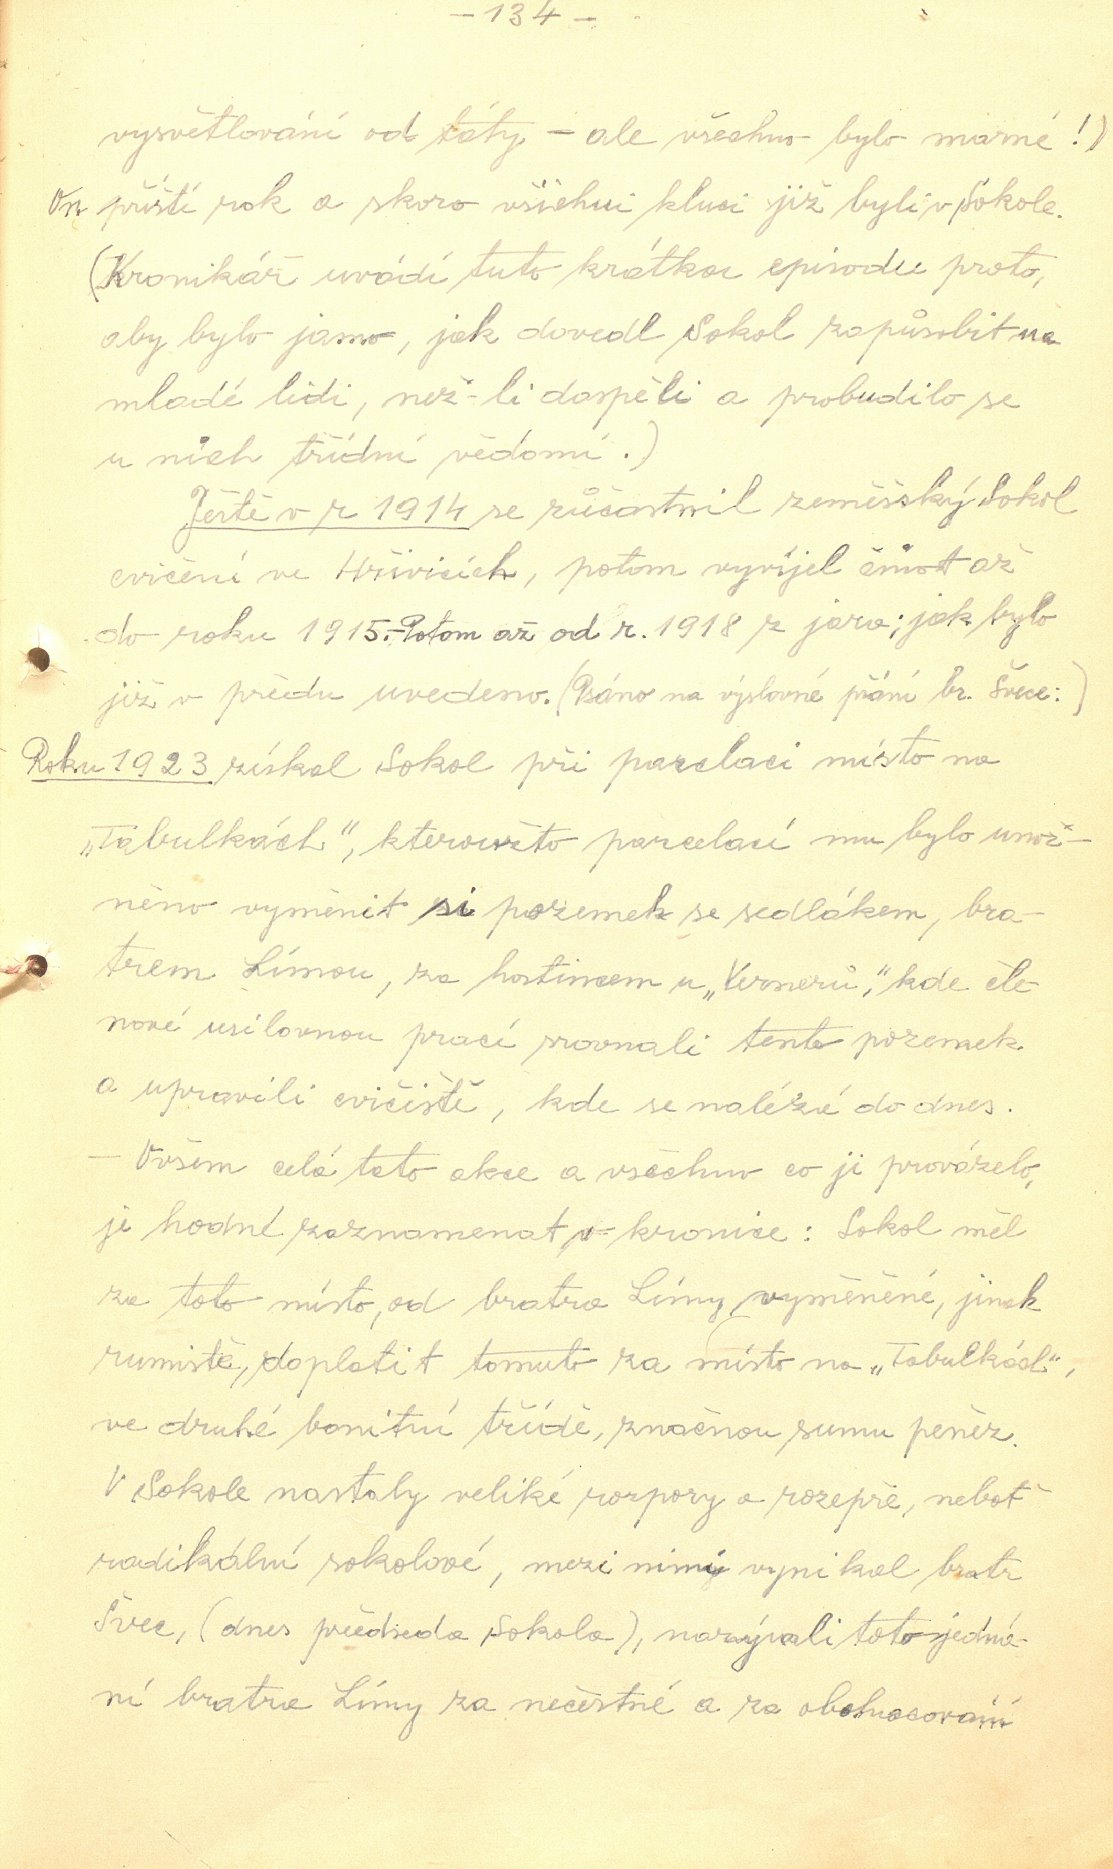 – 134 –
vysvětlování od táty – ale všechno bylo marné!)
On příští rok a skoro všichni kluci již byli v Sokole.
(Kronikář uvádí tuto krátkou episodu proto,
aby bylo jasno, jak dovedl Sokol zapůsobit na
mladé lidi, než-li dospěli a probudilo se
u nich třídní vědomí.)
Ještě v r 1914 se zůčastnil zeměšský Sokol
cvičení ve Hřivicích, potom vyvíjel činost až
do roku 1915.-Potom až od r. 1918 z jara; jak bylo
již v předu uvedeno. (Psáno na výslovné přání br. Švece:)
Roku 1923 získal Sokol při parcelaci místo na
„Tabulkách“, kteroužto parcelací mu bylo umož-
něno vyměnit si pozemek se sedlákem, bra-
trem Límou, za hostincem u „Vernerů“, kde čle-
nové usilovnou prací srovnali tento pozemek
a upravili cvičiště, kde se nalézá do dnes.
– Ovšem celá tato akce a všechno co ji provázelo,
je hodné zaznamenat v kronice: Sokol měl
za toto místo, od bratra Límy vyměněné, jinak
rumiště, doplatit tomuto za místo na „Tabulkách“,
ve druhé bonitní třídě, značnou sumu peněz.
V Sokole nastaly veliké rozpory a rozepře, neboť
radikální sokolové, mezi nimi vynikal bratr
Švec, (dnes předseda Sokola), nazývali toto jedná-
ní bratra Límy za nečestné a za obohacování